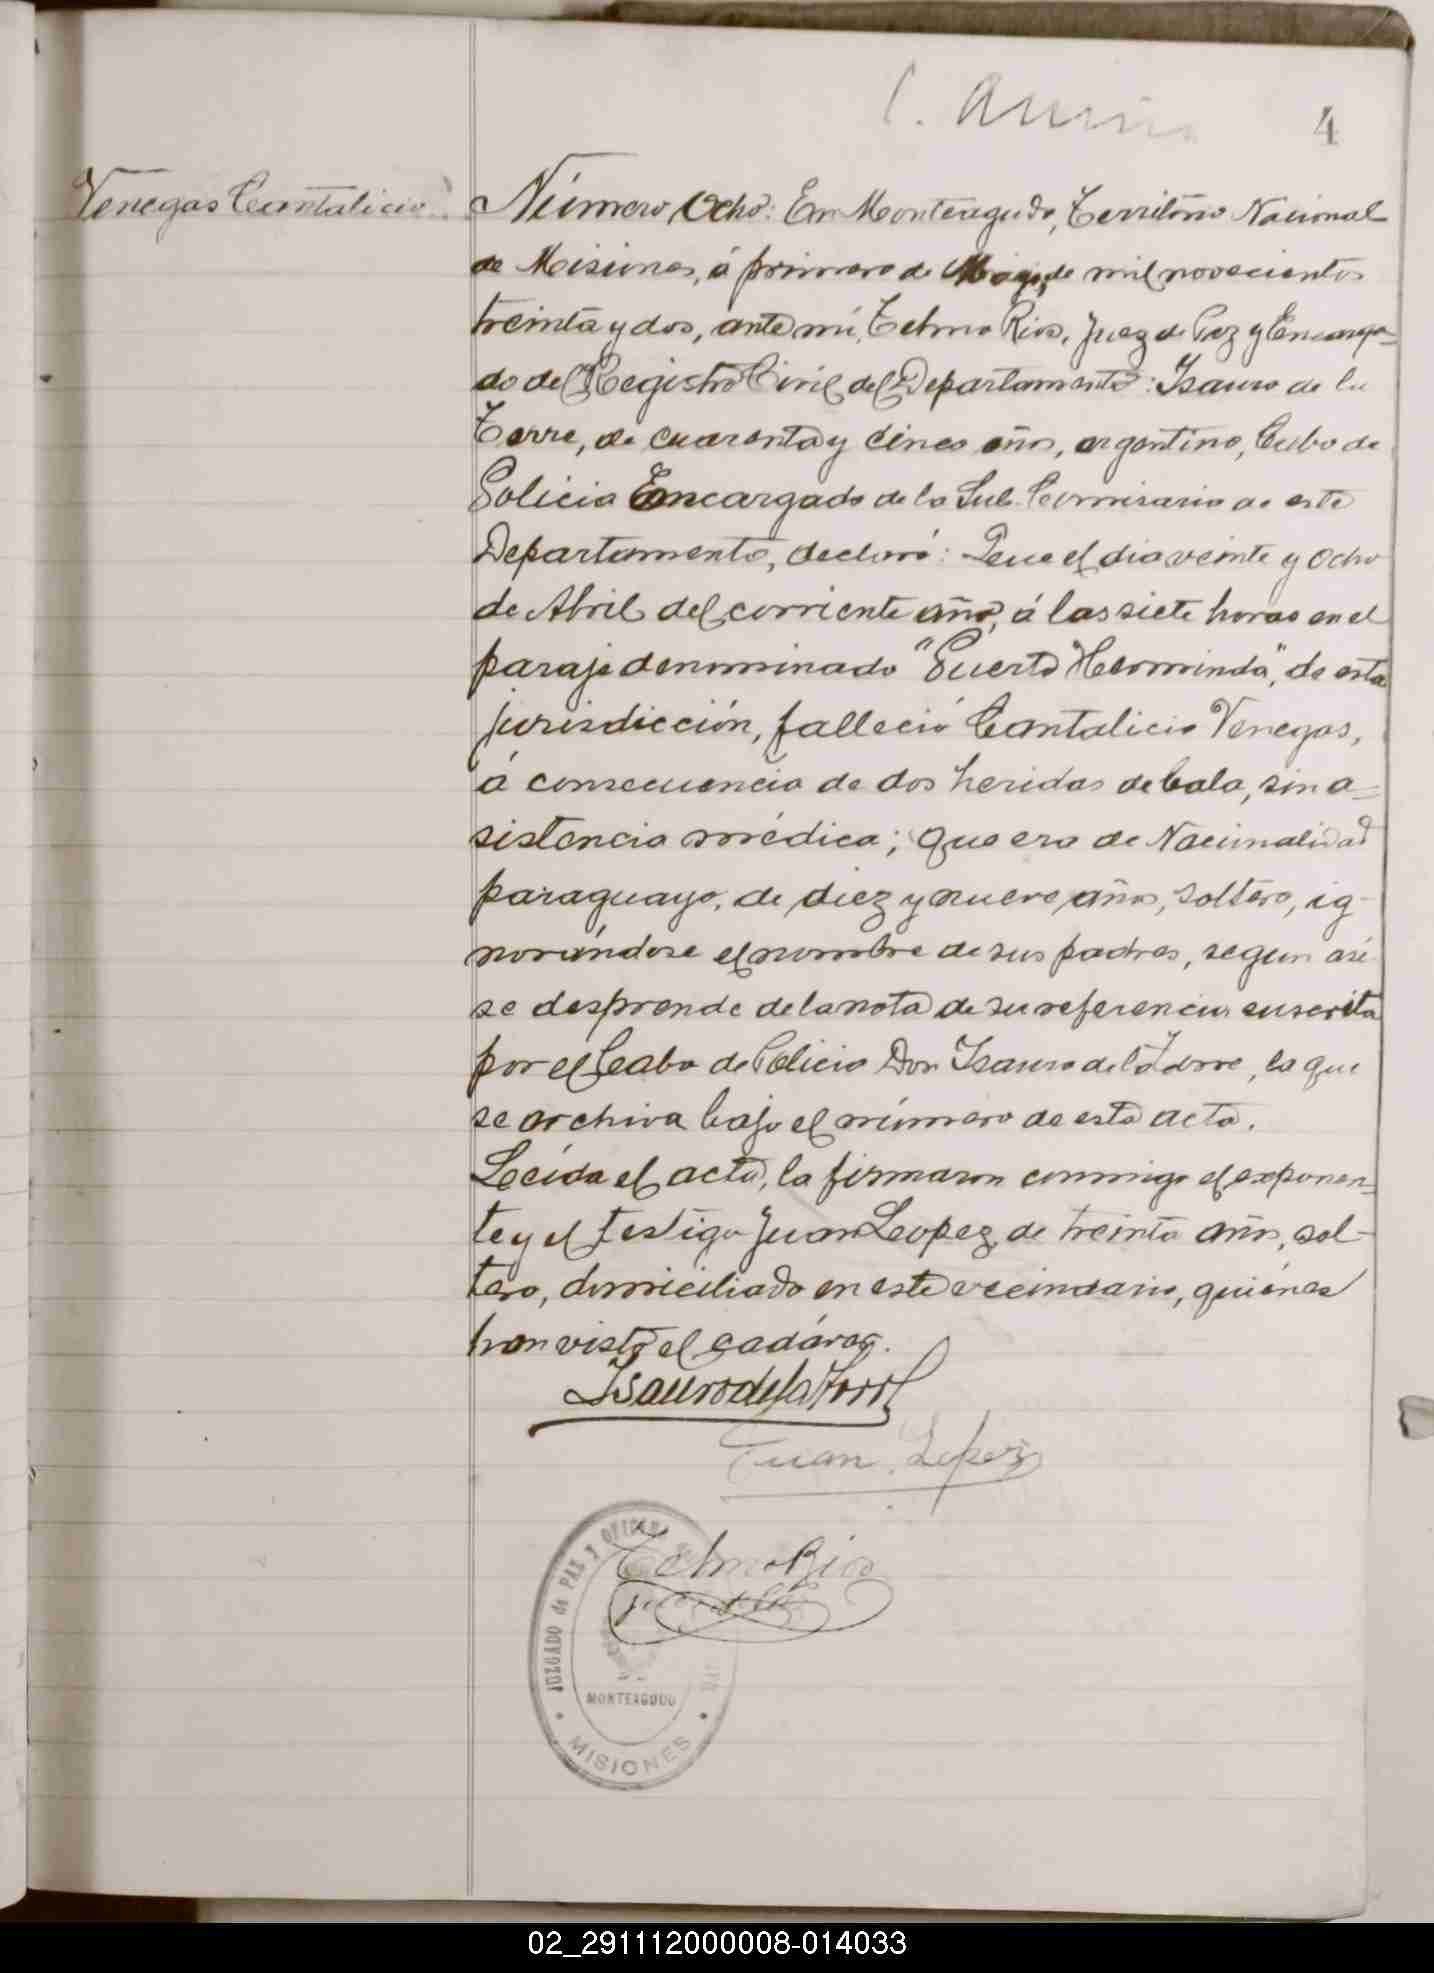 4
Venegas Cantalicio
Número Ocho: En Monteagudo, Territorio Nacional
de Misiones, á primero de Mayo, de mil novecientos
treinta y dos, ante mí, Telmo Rios, Juez de Paz y Encarga-
do del Registro Civil del Departamento: Isauro de la
Torre, de cuarenta y cinco años, argentino, Cabo de
Policia Encargado de la Sub. Comisaria de este
Departamento, declaró: Que el dia veinte y ocho
de Abril del corriente año, á las siete horas en el
paraje denominado "Puerto Herminda", de esta
jurisdicción, falleció Cantalicio Venegas,
á consecuencia de dos heridas de bala, sin a=
sistencia médica; que era de Nacionalidad
paraguayo, de diez y nueve años, soltero, ig-
norándose el nombre de sus padres, segun asi
se desprende de la nota de su referencia suscrita
por el Cabo de Policia Don Isauro de la Torre, la que
se archiva bajo el número de esta acta.
Leída el acta, la firmaron conmigo el exponen=
te y el testigo Juan Leopez, de treinta años, sol-
tero, domiciliado en este vecindario, quiénes
han visto el cadáver.
Isauro de la Torre
Juan Lopez
Telmo Rios
Juez de Paz
JUZGADO de PAZ y OFICINA
MONTEAGUDO
MISIONES
02_291112000008-014033